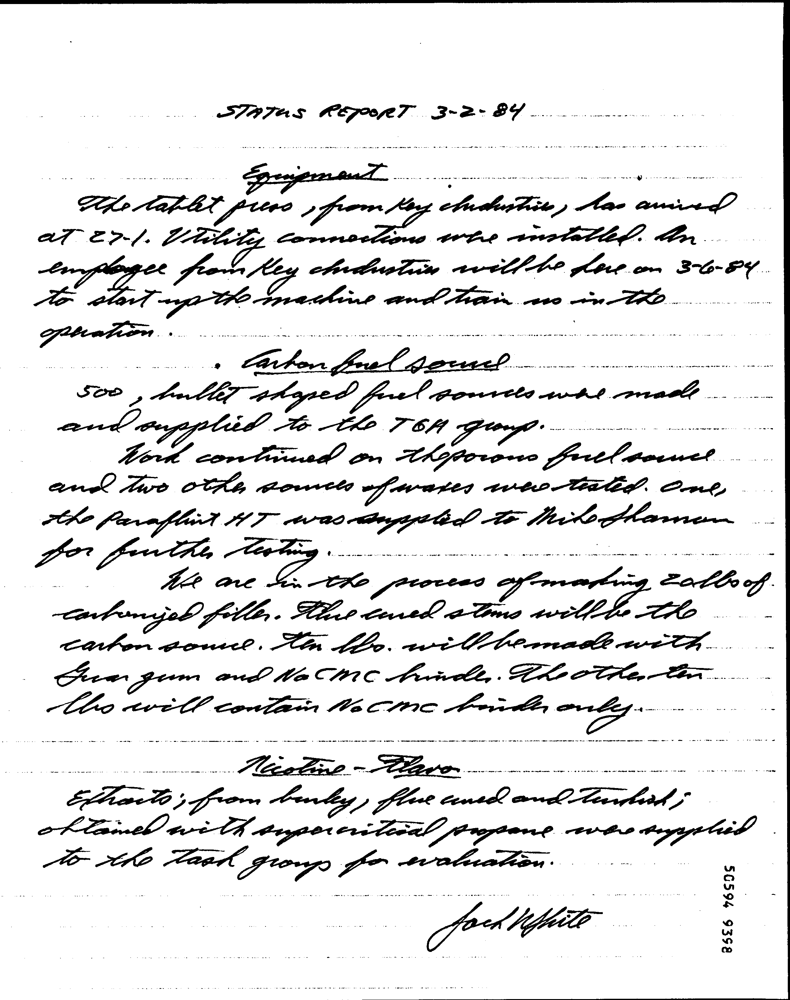 STATUS REPORT 3-2-84
Equipment
The tablet press, from Key Industries, has arrived
at 27-1. Utility connections were installed. An
employee from Key Industries will be here on 3-6-84
to start up the machine and train us in the
operation.
. Carbon fuel source
500, bullet shaped fuel sources were made
and supplied to the TGA group.
Work continued on the porous fuel source
and two other sources of waxes were tested. One,
the Paraflint HT was supplied to Mike Shannon
for further testing.
We are in the process of making 20 lbs of
carbonized filler. Flue cured stems will be the
carbon source. Ten lbs. will be made with
Guar gum and NaCMC binder. The other ten
lbs will contain NaCMC binder only.
Nicotine - Flavo
Extracts; from burley, flue cured and turkish;
obtained with supercritical propane were supplied
to the task group for evaluation.
Jack White
50594 9398